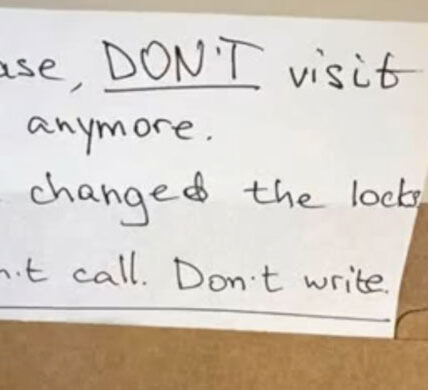 ase, DON'T visit
anymore.
changed the locks
n't call. Don't write.